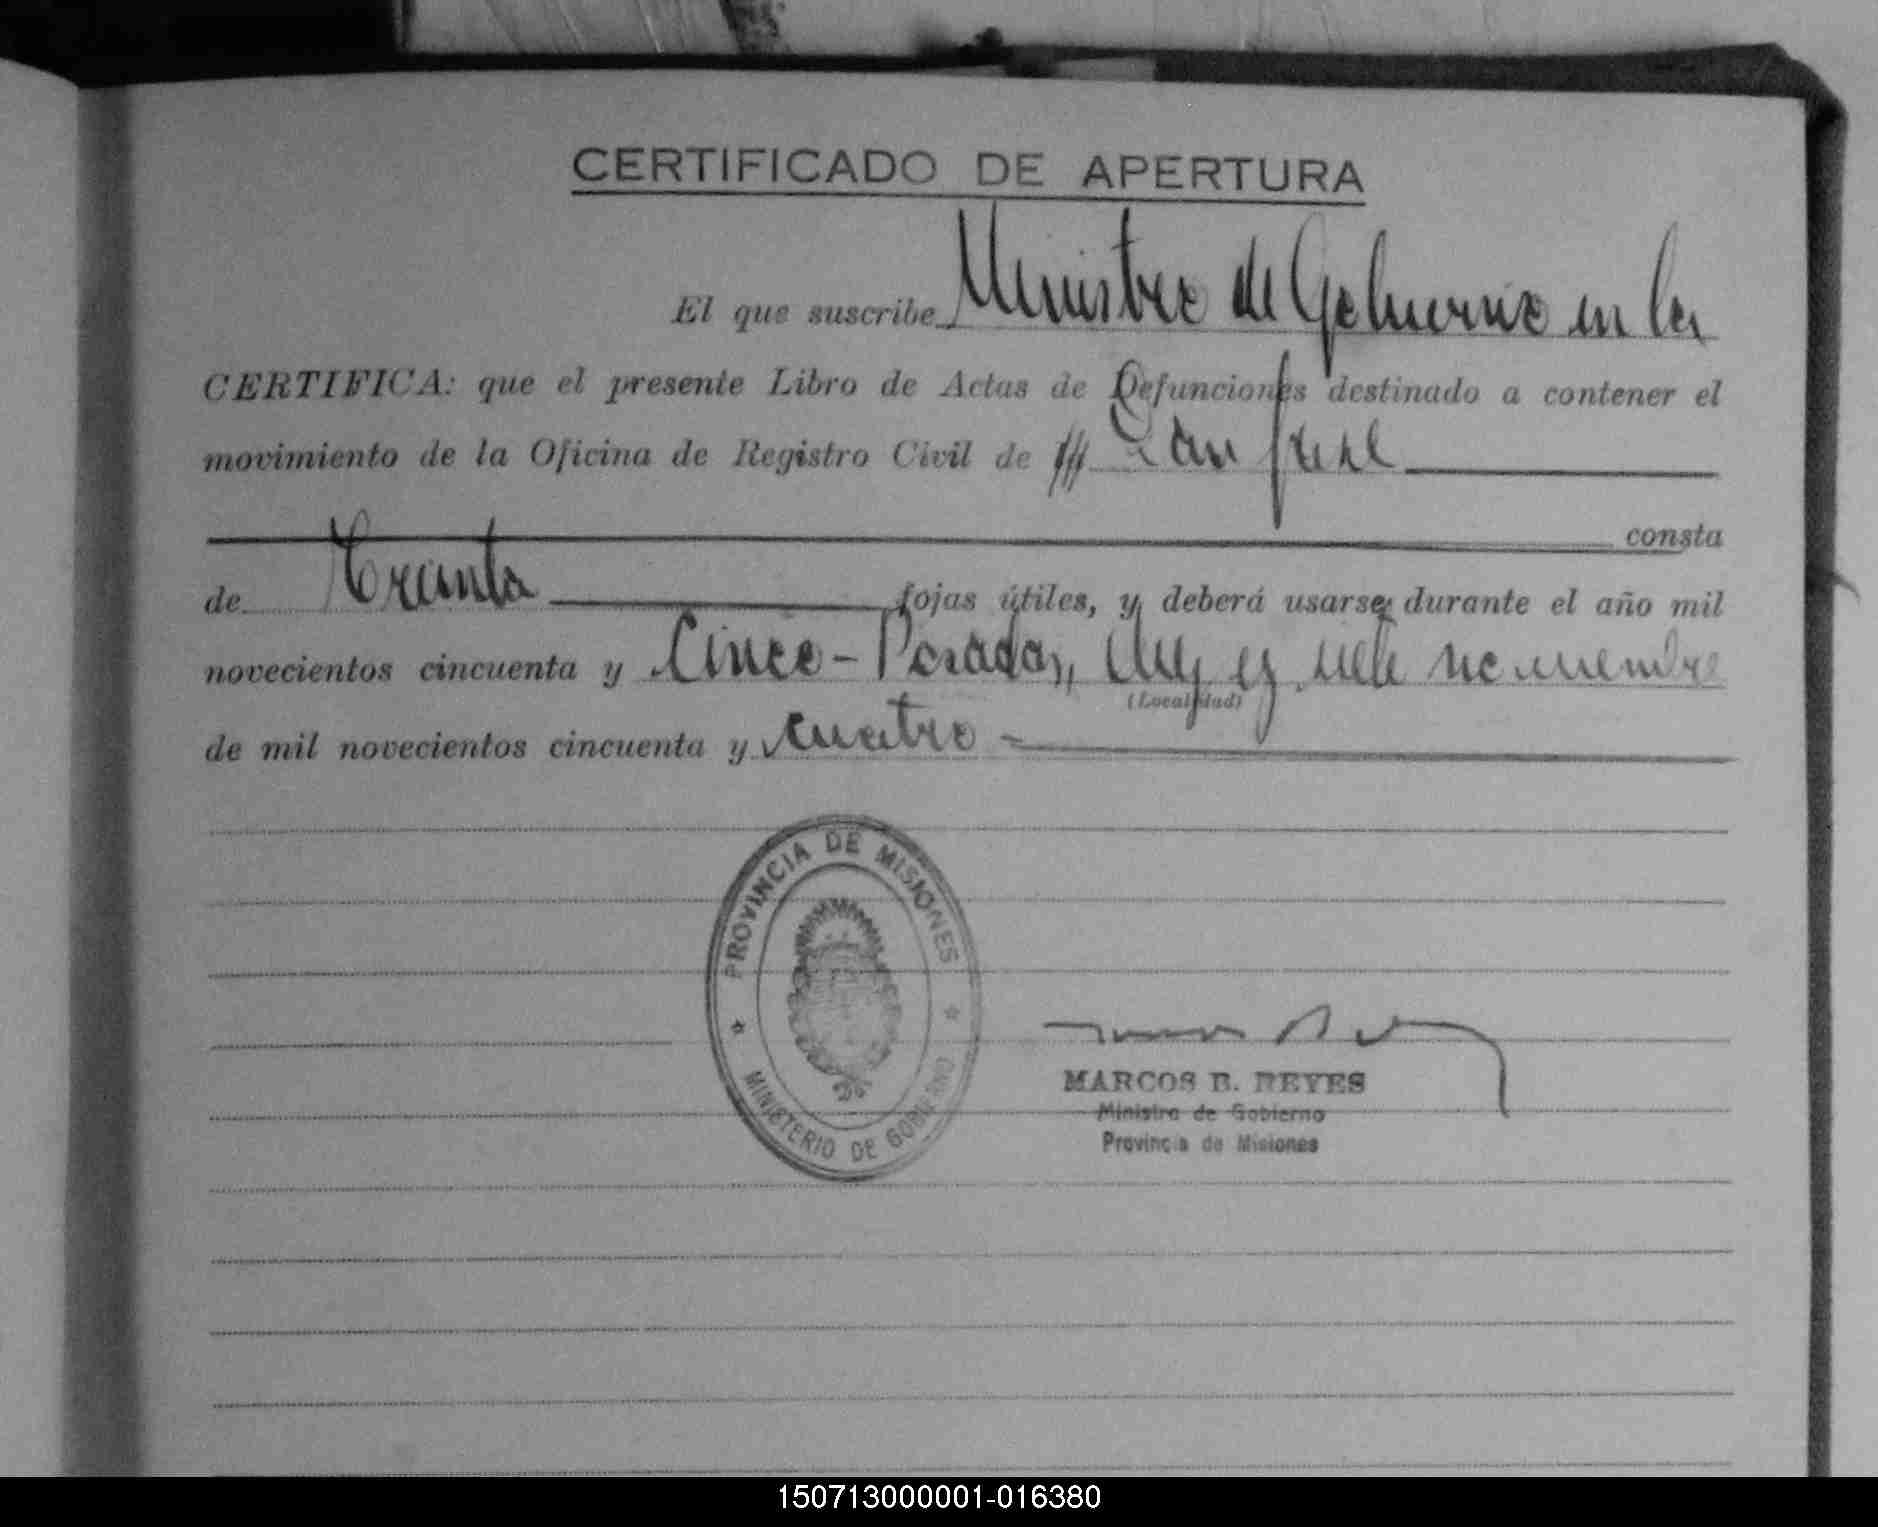 CERTIFICADO DE APERTURA
El que suscribe Ministro de Gobierno en la
CERTIFICA: que el presente Libro de Actas de Defunciones destinado a contener el
movimiento de la Oficina de Registro Civil de San José
consta
de Treinta fojas útiles, y deberá usarse durante el año mil
novecientos cincuenta y Cinco - Posadas, diez y siete noviembre
(Localidad)
de mil novecientos cincuenta y cuatro -
PROVINCIA DE MISIONES
MINISTERIO DE GOBIERNO
MARCOS B. REYES
Ministro de Gobierno
Provincia de Misiones
150713000001-016380